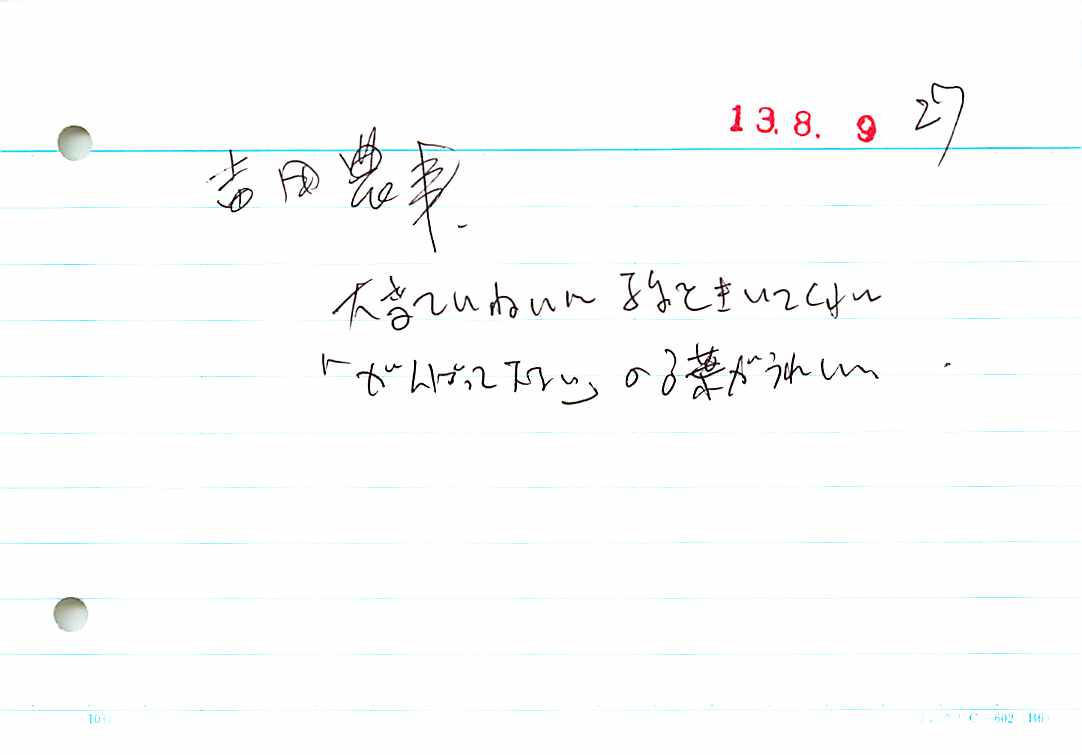 13.8.9 27
吉田農事
大変ていねいに 話をきいてくれ
「がんばって下さい」の言葉がうれしい
602 B6